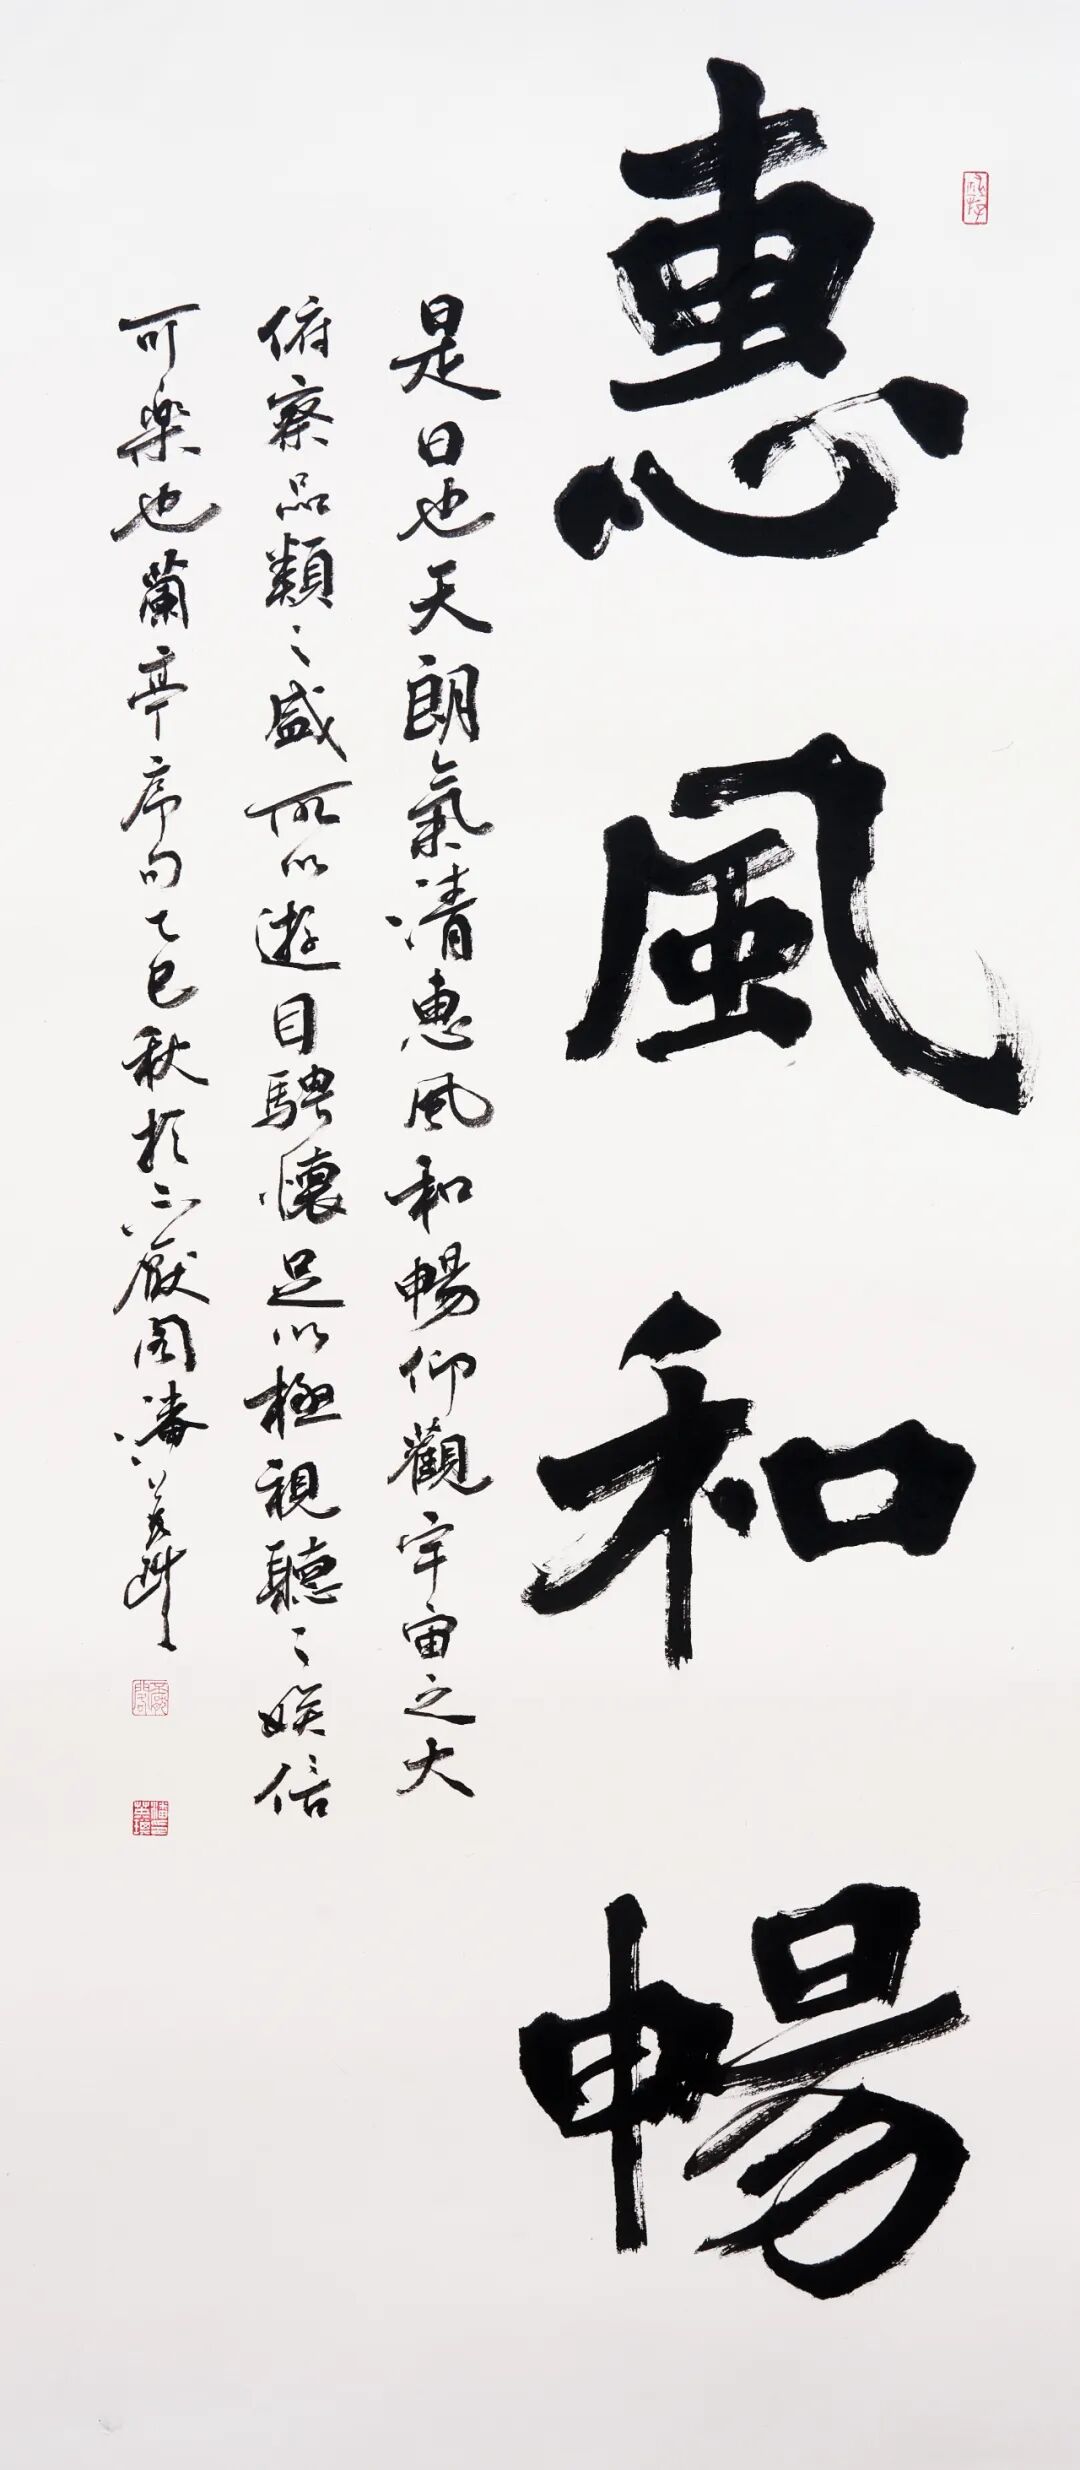 惠風和暢
是日也天朗氣清惠風和暢仰觀宇宙之大
俯察品類之盛所以遊目騁懷足以極視聽之娛信
可樂也蘭亭序句乙巳秋於不厭閣潘英琪
不厭閣
潘英琪印